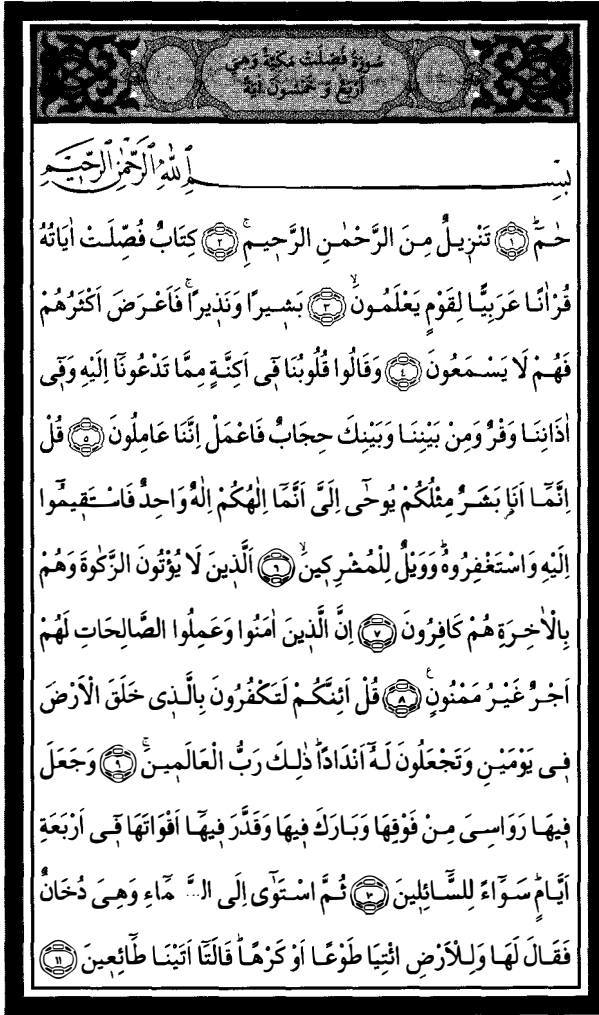 سُورَةُ فُصِّلَتْ مَكِّيَّةٌ وَهِيَ
اَرْبَعٌ وَ خَمْسُونَ اٰيَةً
بِسْمِ اللّٰهِ الرَّحْمٰنِ الرَّحِيمِ
حٰمٓۜ ﴿١﴾ تَنْزِيلٌ مِنَ الرَّحْمٰنِ الرَّحِيمِۚ ﴿٢﴾ كِتَابٌ فُصِّلَتْ اٰيَاتُهُ
قُرْاٰنًا عَرَبِيًّا لِقَوْمٍ يَعْلَمُونَۙ ﴿٣﴾ بَشِيرًا وَنَذِيرًاۚ فَاَعْرَضَ اَكْثَرُهُمْ
فَهُمْ لَا يَسْمَعُونَ ﴿٤﴾ وَقَالُوا قُلُوبُنَا فٓى اَكِنَّةٍ مِمَّا تَدْعُونَٓا اِلَيْهِ وَفٓى
اٰذَانِنَا وَقْرٌ وَمِنْ بَيْنِنَا وَبَيْنِكَ حِجَابٌ فَاعْمَلْ اِنَّنَا عَامِلُونَ ﴿٥﴾ قُلْ
اِنَّمَٓا اَنَا۬ بَشَرٌ مِثْلُكُمْ يُوحٰٓى اِلَىَّ اَنَّمَٓا اِلٰهُكُمْ اِلٰهٌ وَاحِدٌ فَاسْتَقِيمُٓوا
اِلَيْهِ وَاسْتَغْفِرُوهُۜ وَوَيْلٌ لِلْمُشْرِكِينَۙ ﴿٦﴾ اَلَّذِينَ لَا يُؤْتُونَ الزَّكٰوةَ وَهُمْ
بِالْاٰخِرَةِ هُمْ كَافِرُونَ ﴿٧﴾ اِنَّ الَّذِينَ اٰمَنُوا وَعَمِلُوا الصَّالِحَاتِ لَهُمْ
اَجْرٌ غَيْرُ مَمْنُونٍ۟ ﴿٨﴾ قُلْ اَئِنَّكُمْ لَتَكْفُرُونَ بِالَّذِى خَلَقَ الْاَرْضَ
فِى يَوْمَيْنِ وَتَجْعَلُونَ لَهُٓ اَنْدَادًاۜ ذٰلِكَ رَبُّ الْعَالَمِينَۚ ﴿٩﴾ وَجَعَلَ
فِيهَا رَوَاسِىَ مِنْ فَوْقِهَا وَبَارَكَ فِيهَا وَقَدَّرَ فِيهَٓا اَقْوَاتَهَا فٓى اَرْبَعَةِ
اَيَّامٍۜ سَوَٓاءً لِلسَّٓائِلِينَ ﴿١٠﴾ ثُمَّ اسْتَوٰٓى اِلَى السَّمَٓاءِ وَهِىَ دُخَانٌ
فَقَالَ لَهَا وَلِلْاَرْضِ ائْتِيَا طَوْعًا اَوْ كَرْهًاۜ قَالَتَٓا اَتَيْنَا طَٓائِعِينَ ﴿١١﴾